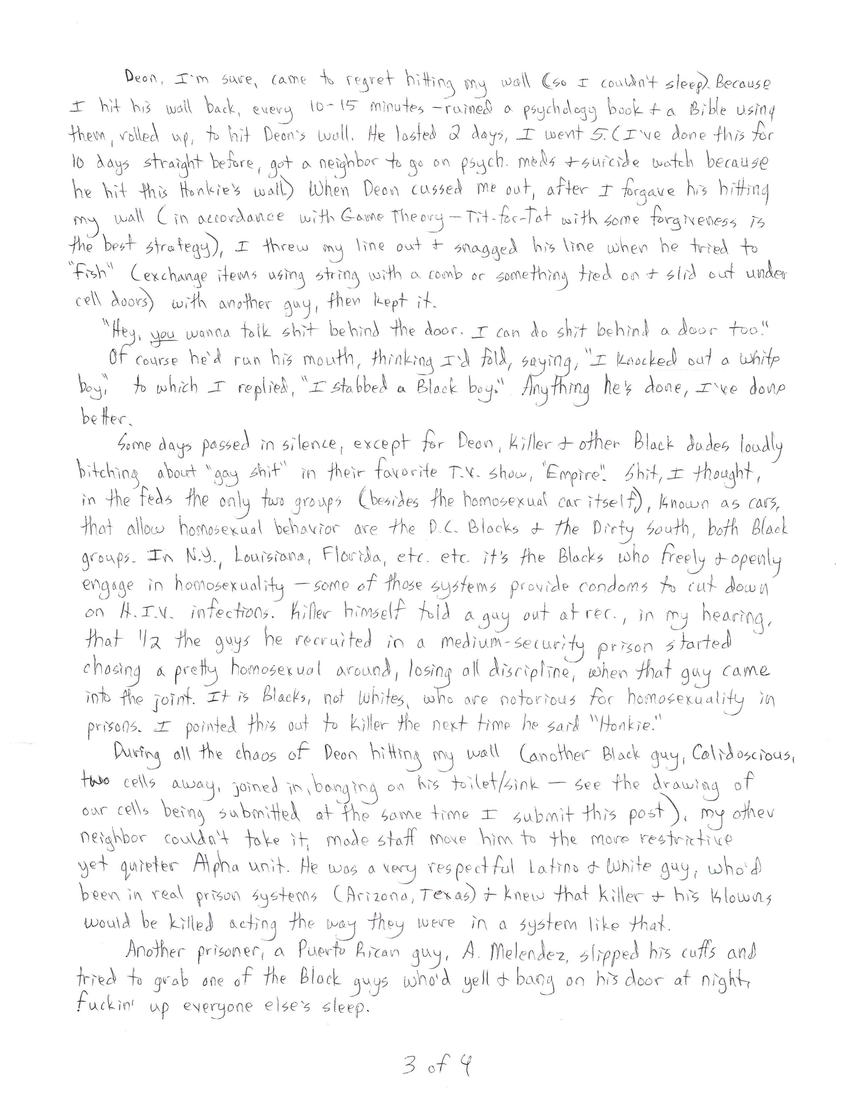 Deon, I'm sure, came to regret hitting my wall (so I couldn't sleep). Because
I hit his wall back, every 10-15 minutes - ruined a psychology book + a Bible using
them, rolled up, to hit Deon's wall. He lasted 2 days, I went 5. (I've done this for
10 days straight before, got a neighbor to go on psych. meds + suicide watch because
he hit this Honkie's wall) When Deon cussed me out, after I forgave his hitting
my wall (in accordance with Game Theory - Tit-for-Tat with some forgiveness is
the best strategy), I threw my line out + snagged his line when he tried to
"fish" (exchange items using string with a comb or something tied on + slid out under
cell doors) with another guy, then kept it.
"Hey, you wanna talk shit behind the door. I can do shit behind a door too."
Of course he'd run his mouth, thinking I'd fold, saying, "I knocked out a white
boy," to which I replied, "I stabbed a Black boy." Anything he's done, I've done
better.
Some days passed in silence, except for Deon, Killer + other Black dudes loudly
bitching about "gay shit" in their favorite T.V. show, "Empire". Shit, I thought,
in the feds the only two groups (besides the homosexual car itself), known as cars,
that allow homosexual behavior are the D.C. Blacks + the Dirty South, both Black
groups. In N.Y., Louisiana, Florida, etc. etc. it's the Blacks who freely + openly
engage in homosexuality - some of those systems provide condoms to cut down
on H.I.V. infections. Killer himself told a guy out at rec., in my hearing,
that 1/2 the guys he recruited in a medium-security prison started
chasing a pretty homosexual around, losing all discipline, when that guy came
into the joint. It is Blacks, not Whites, who are notorious for homosexuality in
prisons. I pointed this out to Killer the next time he said "Honkie."
During all the chaos of Deon hitting my wall (another Black guy, Calidoscious,
two cells away, joined in, banging on his toilet/sink - see the drawing of
our cells being submitted at the same time I submit this post), my other
neighbor couldn't take it, made staff move him to the more restrictive
yet quieter Alpha unit. He was a very respectful Latino + White guy, who'd
been in real prison systems (Arizona, Texas) + knew that Killer + his Klowns
would be killed acting the way they were in a system like that.
Another prisoner, a Puerto Rican guy, A. Melendez, slipped his cuffs and
tried to grab one of the Black guys who'd yell + bang on his door at night,
fuckin' up everyone else's sleep.
3 of 4